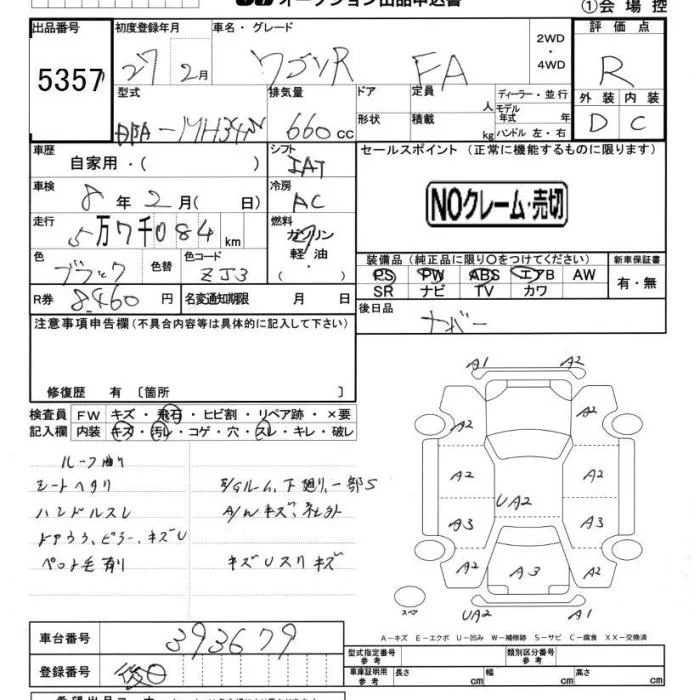 オークション出品申込書
①会場控
出品番号 初度登録年月 車名・グレード 2WD ・ 4WD 評価点
5357 27 2月 ワゴンR FA R
型式 排気量 ドア 定員 人 ディーラー・並行 外装 内装
DBA-MH34S 660cc 形状 積載 kg モデル年式 年 D C
ハンドル 左・右
車歴 自家用・( ) シフト IAT セールスポイント (正常に機能するものに限ります)
車検 8年2月( 日) 冷房 AC NOクレーム・売切
走行 5万7千084km 燃料 ガソリン 軽油
色 ブラック 色替 色コード ZJ3 装備品(純正品に限り〇をつけてください) 新車保証書
PS PW ABS エアB AW 有・無
SR ナビ TV カワ
R券 8,460円 名変通知期限 月 日 後日品
注意事項申告欄(不具合内容等は具体的に記入して下さい) ナンバー
修復歴 有 〔箇所 〕
検査員 FW キズ・飛石・ヒビ割・リペア跡・×要
記入欄 内装 キズ・汚レ・コゲ・穴・スレ・キレ・破レ
A1 A2
A2 A2
A2 A2
UA2
A3 A2
A2 A3 A2
スペア UA2 A1
ルーフ曲り
シートヘタリ E/Gルーム、下廻り、一部S
ハンドルスレ A/Wキズ、
ドアウラ、ピラー、キズU
ペット毛有り キズUスリキズ
A-キズ E-エクボ U-凹み W-補修跡 S-サビ C-腐食 XX-交換済
車台番号 393679
登録番号
型式指定番号 参考 類別区分番号 参考
車庫証明用 参考 長さ cm 幅 cm 高さ cm
希望出品コーナー